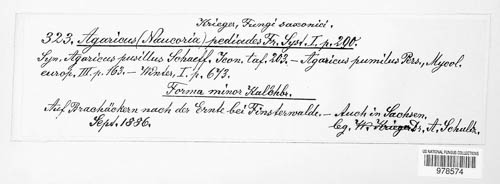 Krieger, Fungi saxonici.
323. Agaricus (Naucoria) pediades Fr. Syst. I. p. 290.
Syn. Agaricus pusillus Schaeff. Icon. taf. 203. — Agaricus pumilus Pers., Mycol.
europ. III. p. 163. — Winter, I. p. 673.
Forma minor Kalchb.
Auf Brachäckern nach der Ernte bei Finsterwalde. — Auch in Sachsen.
Sept. 1886. lg. W. Krieger Dr. A. Schultz.
US NATIONAL FUNGUS COLLECTIONS
978574